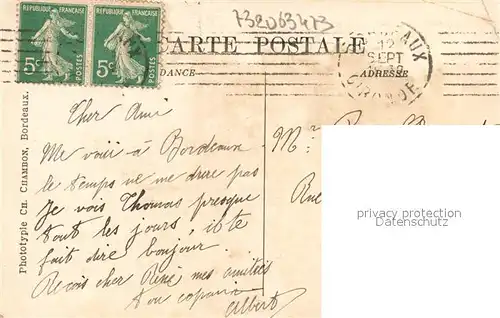 732063473
REPUBLIQUE FRANÇAISE
REPUBLIQUE FRANÇAISE
5c POSTES
5c POSTES
CARTE POSTALE
BORDEAUX
12
SEPT
GIRONDE
DANCE
ADRESSE
Phototypie CH. CHAMBON, Bordeaux.
Cher Ami
Me voici à Bordeaux
le temps ne me dure pas
Je vois Thomas presque
tout les jours, il te
fait dire bonjour.
Recois cher René mes amitiés
ton copain
Albert
Mr
Rue
privacy protection
www.oldthing.com